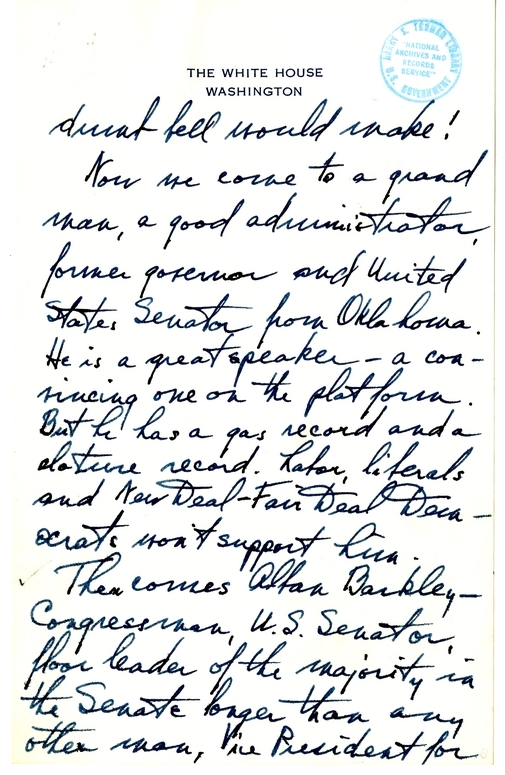 HARRY S. TRUMAN LIBRARY
"NATIONAL
ARCHIVES AND
RECORDS
SERVICE"
U.S. GOVERNMENT
THE WHITE HOUSE
WASHINGTON
dumb bell would make!
Now we come to a grand
man, a good administrator,
former governor and United
States Senator from Oklahoma.
He is a great speaker – a con-
vincing one on the platform.
But he has a gas record and a
cloture record. Labor, liberals
and New Deal-Fair Deal Dem-
ocrats won't support him.
Then comes Alban Barkley–
Congressman, U.S. Senator,
floor leader of the majority in
the Senate longer than any
other man, Vice President for